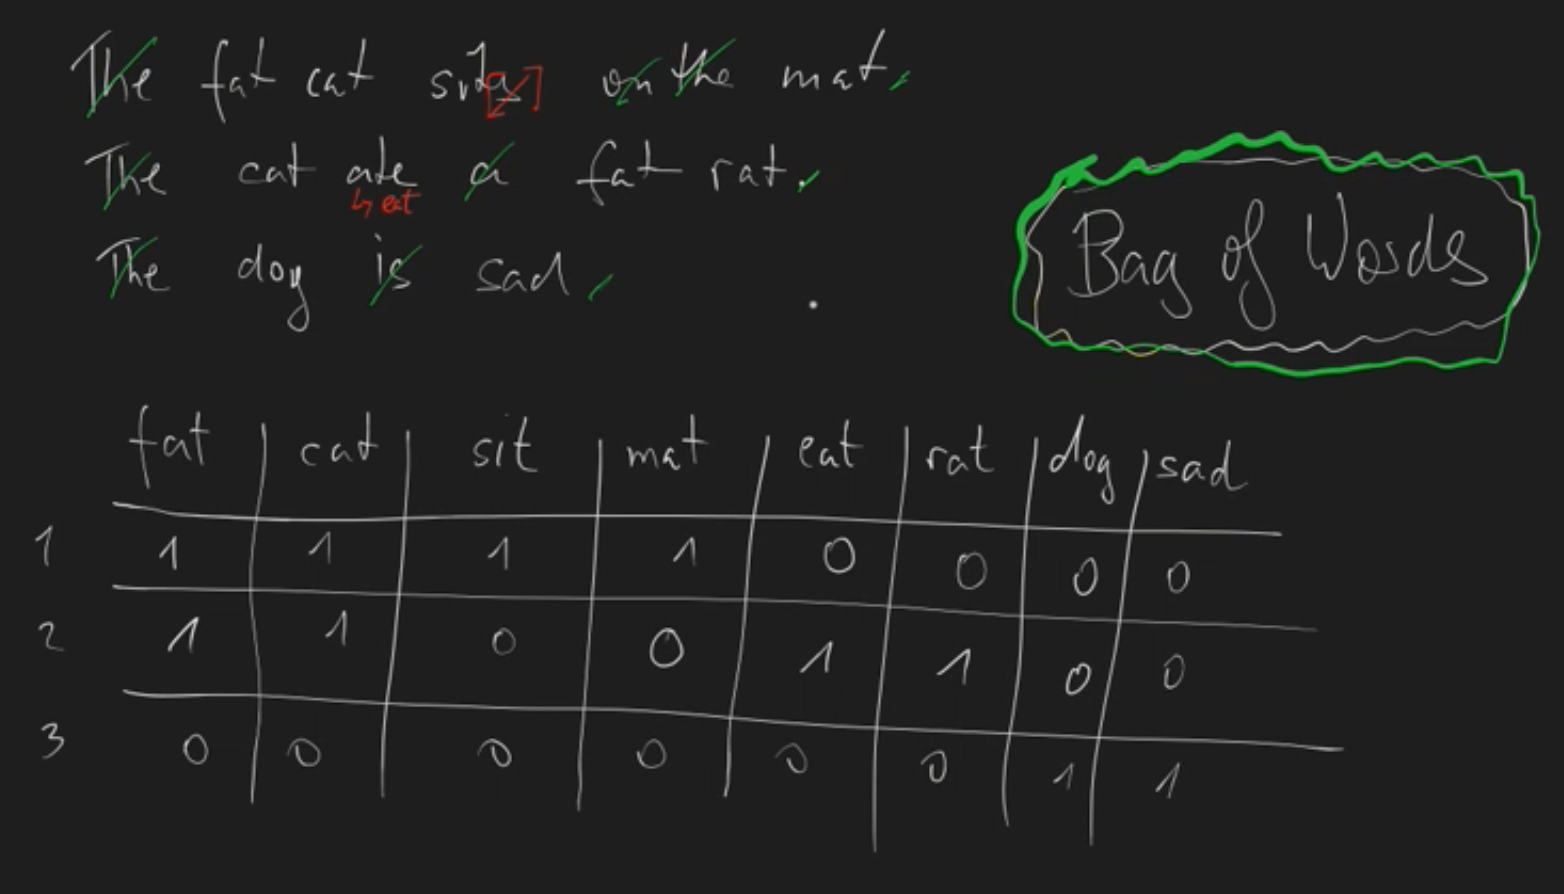 The fat cat sits on the mat.
The cat ate a fat rat.
↳ eat
The dog is sad.
Bag of Words
fat cat sit mat eat rat dog sad
1 1 1 1 1 0 0 0 0
2 1 1 0 0 1 1 0 0
3 0 0 0 0 0 0 1 1